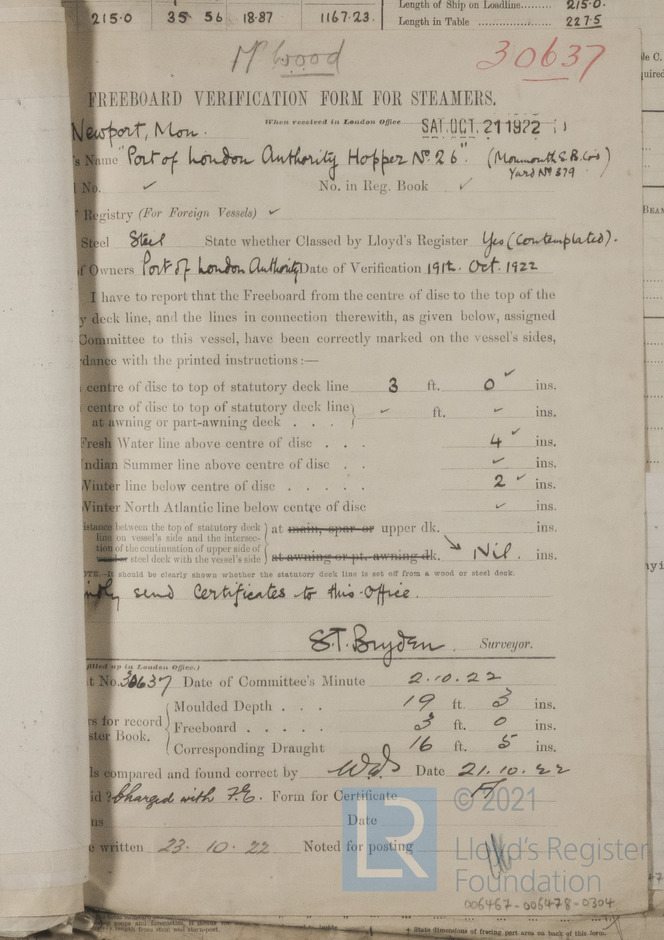 Length of Ship on Loadline......... 215.0.
215.0 35 56 18.87 1167.23.
Length in Table .................. 227.5
Mr Wood
30637
FREEBOARD VERIFICATION FORM FOR STEAMERS.
Newport, Mon. When received in London Office SAT. OCT. 21 1922
's Name "Port of London Authority Hopper No. 26". (Monmouth S.B. Co's
Yard No 379
No. ✓ No. in Reg. Book ✓
Registry (For Foreign Vessels) ✓
Steel Steel State whether Classed by Lloyd's Register Yes (Contemplated).
f Owners Port of London Authority Date of Verification 19th. Oct. 1922
I have to report that the Freeboard from the centre of disc to the top of the
y deck line, and the lines in connection therewith, as given below, assigned
Committee to this vessel, have been correctly marked on the vessel's sides,
dance with the printed instructions:—
centre of disc to top of statutory deck line 3 ft. 0 ✓ ins.
centre of disc to top of statutory deck line ✓ ft. ✓ ins.
at awning or part-awning deck . . .
Fresh Water line above centre of disc . . . 4 ✓ ins.
Indian Summer line above centre of disc . . ✓ ins.
Winter line below centre of disc . . . . . 2 ✓ ins.
Winter North Atlantic line below centre of disc ✓ ins.
istance between the top of statutory deck
line on vessel's side and the intersec-
tion of the continuation of upper side of
steel deck with the vessel's side
at main, spar or upper dk. ins.
at awning or pt. awning dk. Nil. ins.
NOTE.—It should be clearly shown whether the statutory deck line is set off from a wood or steel deck.
indly send Certificates to this Office.
S.T. Bryden. Surveyor.
filled up in London Office.)
t No. 30637 Date of Committee's Minute 2.10.22
rs for record
ster Book.
Moulded Depth . . . 19 ft. 3 ins.
Freeboard . . . . . 3 ft. 0 ins.
Corresponding Draught 16 ft. 5 ins.
ls compared and found correct by Date 21.10.22
id? Charged with F.E. Form for Certificate
ns Date
e written 23.10.22 Noted for posting
LR
© 2021
Lloyd's Register
Foundation
006467-006478-0304
+ State dimensions of freeing port area on back of this form.